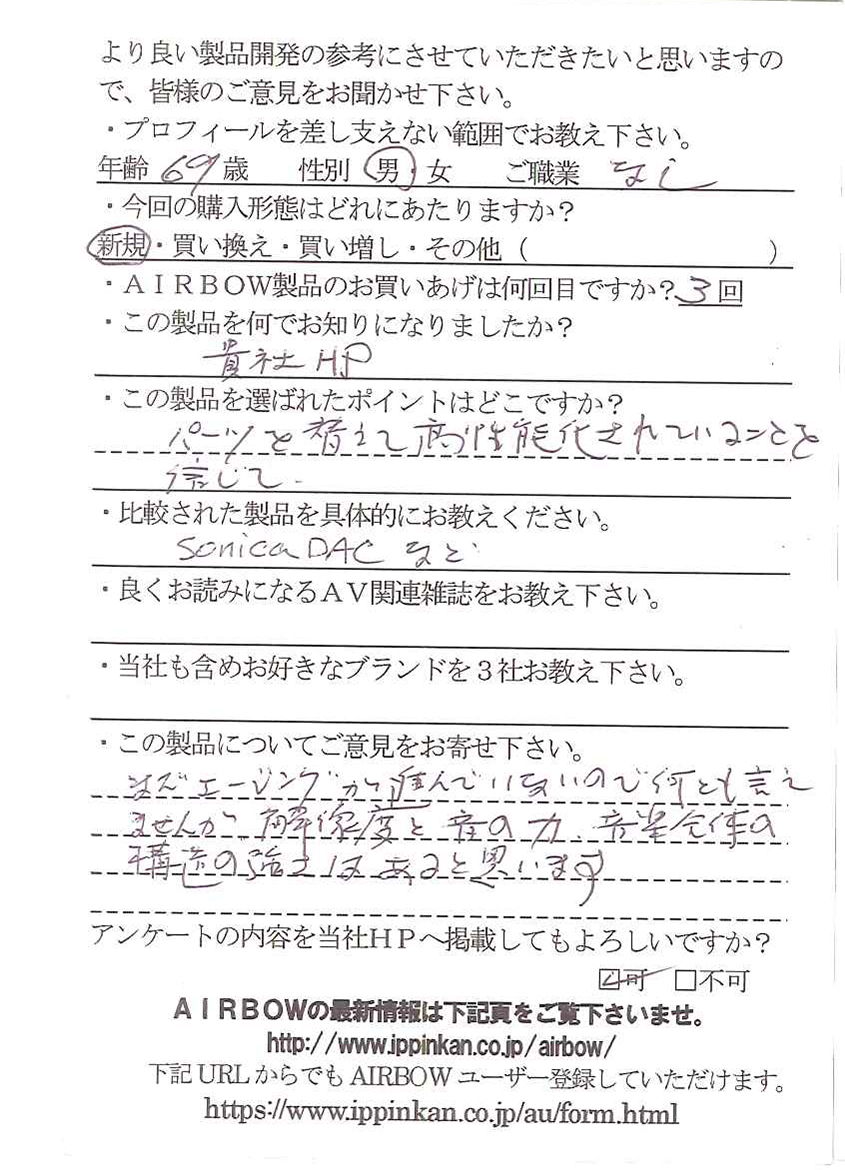 より良い製品開発の参考にさせていただきたいと思いますの
で、皆様のご意見をお聞かせ下さい。
・プロフィールを差し支えない範囲でお教え下さい。
年齢 69 歳 性別 男・女 ご職業 なし
・今回の購入形態はどれにあたりますか？
新規・買い換え・買い増し・その他（ ）
・ＡＩＲＢＯＷ製品のお買いあげは何回目ですか？ 3 回
・この製品を何でお知りになりましたか？
貴社HP
・この製品を選ばれたポイントはどこですか？
パーツを替えて高性能化されていることを
信じて.
・比較された製品を具体的にお教えください。
Sonica DAC など
・良くお読みになるＡＶ関連雑誌をお教え下さい。
・当社も含めお好きなブランドを３社お教え下さい。
・この製品についてご意見をお寄せ下さい。
まだエージングが進んでいないので何とも言え
ませんが 解像度と音の力、音楽全体の
構造の強さはあると思います
アンケートの内容を当社ＨＰへ掲載してもよろしいですか？
☑可 □不可
ＡＩＲＢＯＷの最新情報は下記頁をご覧下さいませ。
http://www.ippinkan.co.jp/airbow/
下記 URL からでも AIRBOW ユーザー登録していただけます。
https://www.ippinkan.co.jp/au/form.html